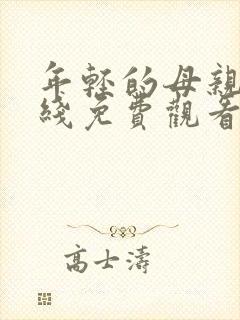 年輕的母親
綫免費觀看
高士濤